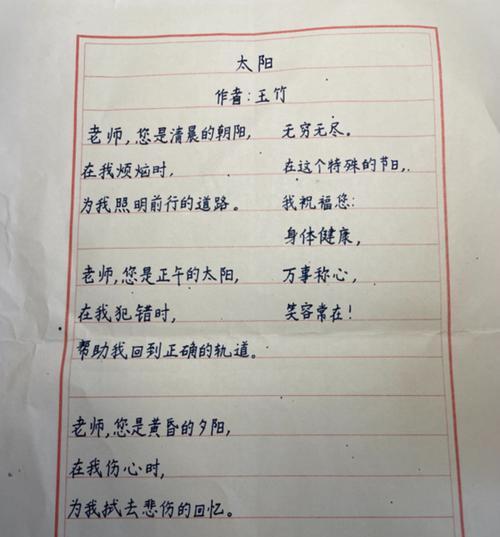 太阳
作者：王竹
老师，您是清晨的朝阳，
在我烦恼时，
为我照明前行的道路。
老师，您是正午的太阳，
在我犯错时，
帮助我回到正确的轨道。
老师，您是黄昏的夕阳，
在我伤心时，
为我拭去悲伤的回忆。
无穷无尽。
在这个特殊的节日，
我祝福您：
身体健康，
万事称心，
笑容常在！